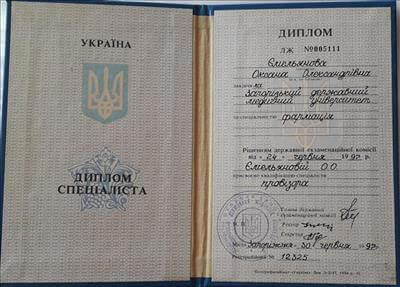 УКРАЇНА
ДИПЛОМ
СПЕЦІАЛІСТА
ДИПЛОМ
ЛЖ №005111
Ємельянова
Оксана Олександрівна
закінчила
Запорізький державний
медичний університет
за спеціальністю фармація
Рішенням державної екзаменаційної комісії
від «24» червня 1997р.
Ємельяновій О.О.
присвоєно кваліфікацію спеціаліста
провізора
Голова Державної
екзаменаційної комісії
М. П. Ректор
Секретар
Місто Запоріжжя «30» червня 1997р.
Реєстраційний № 12325